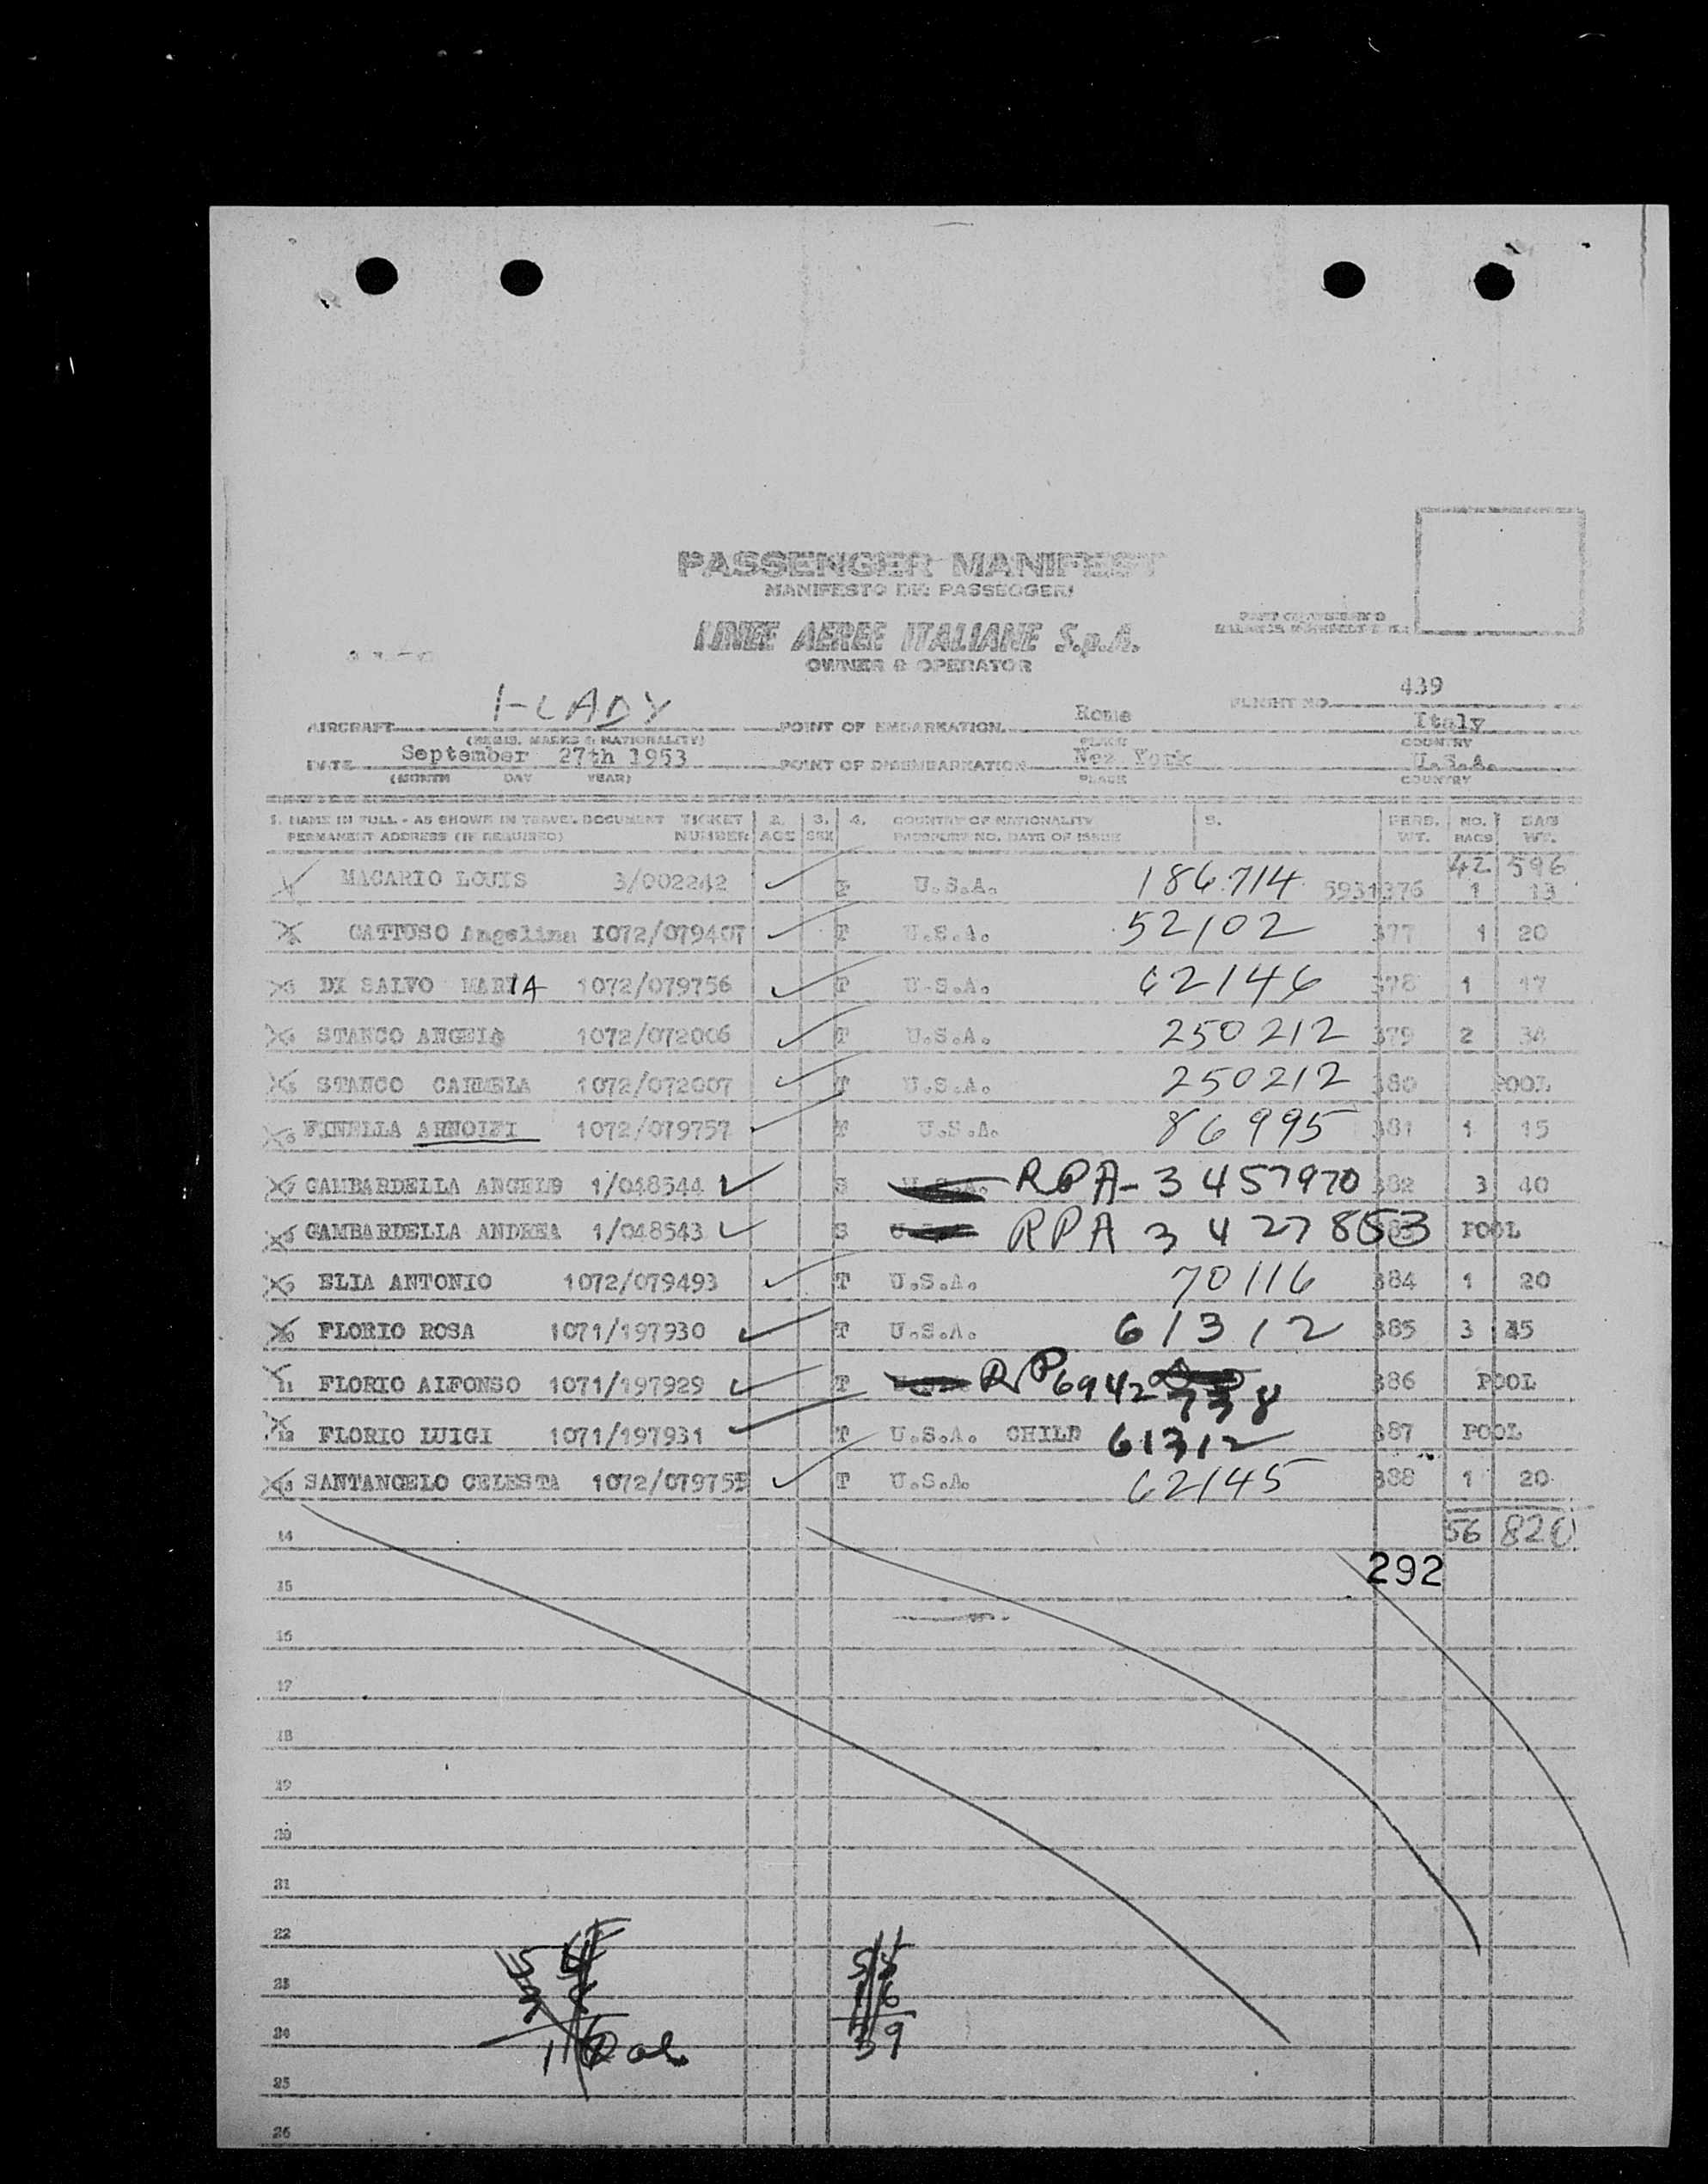 PASSENGER MANIFEST
MANIFESTO DEI PASSEGGERI
LINEE AEREE ITALIANE S.p.A.
OWNER & OPERATOR
439
AIRCRAFT I-LADY POINT OF EMBARKATION Rome FLIGHT NO. Italy
(REGIS. MARKS & NATIONALITY) PLACE COUNTRY
DATE September 27th 1953 POINT OF DISEMBARKATION New York U.S.A.
(MONTH DAY YEAR) PLACE COUNTRY
1. NAME IN FULL - AS SHOWN IN TRAVEL DOCUMENT TICKET 2. 3. 4. COUNTRY OF NATIONALITY 5. PERS. NO. BAG
PERMANENT ADDRESS (IF REQUIRED) NUMBER AGE SEX PASSPORT NO. DATE OF ISSUE WT. BAGS WT.
42 596
MACARIO LOUIS 3/002242 U.S.A. 186714 5931376 1 13
GATTUSO Angelina 1072/079407 T U.S.A. 52102 377 1 20
3 DI SALVO MARIA 1072/079756 T U.S.A. 62146 378 1 17
STANCO ANGELA 1072/072006 T U.S.A. 250212 379 2 34
5 STANCO CARMELA 1072/072007 T U.S.A. 250212 380 POOL
6 FINELLA 1072/079757 T U.S.A. 86995 381 1 15
7 GAMBARDELLA ANGELO 1/048544 S U.S.A. RPA-3457970 382 3 40
8 GAMBARDELLA ANDREA 1/048543 S RPA 3427853 POOL
9 ELIA ANTONIO 1072/079493 T U.S.A. 70116 384 1 20
10 FLORIO ROSA 1071/197930 T U.S.A. 61312 385 3 45
11 FLORIO ALFONSO 1071/197929 T RP 6942 738 386 POOL
12 FLORIO LUIGI 1071/197931 T U.S.A. CHILD 61312 387 POOL
13 SANTANGELO CELESTA 1072/079755 T U.S.A. 62145 388 1 20
14 56 820
292
15
16
17
18
19
20
21
22
23
24
25
26